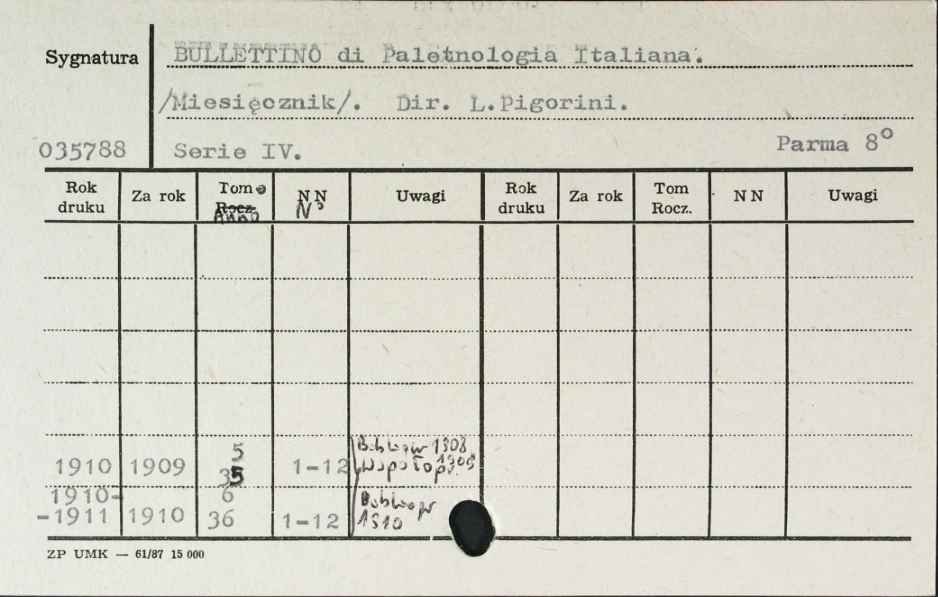 Sygnatura
BULLETTINO di Paletnologia Italiana.
/Miesięcznik/. Dir. L.Pigorini.
035788 Serie IV. Parma 8°
Rok druku Za rok Tom Rocz. Anno NN N° Uwagi Rok druku Za rok Tom Rocz. NN Uwagi
5 1908
1910 1909 35 1-12 1909
1910- 6
-1911 1910 36 1-12 1910
ZP UMK — 61/87 15 000